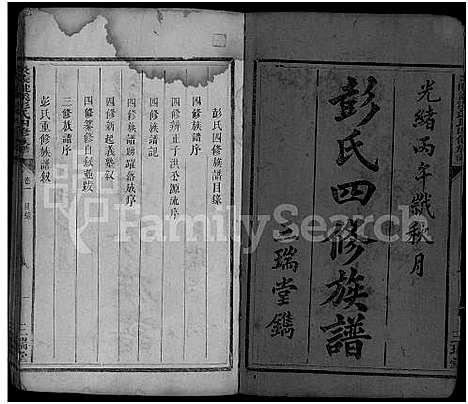 光緒丙午歲秋月
彭氏四修族譜
三瑞堂鐫
彭氏四修族譜目錄
四修族譜序
四修辨正子洪公源流序
四修族譜記
四修族譜踴躍落成序
四修新起義學叙
四修纂修自叙並跋
三修族譜序
彭氏重修族譜叙
彭氏四修族譜
卷一
目錄
一
三瑞堂
FamilySearch